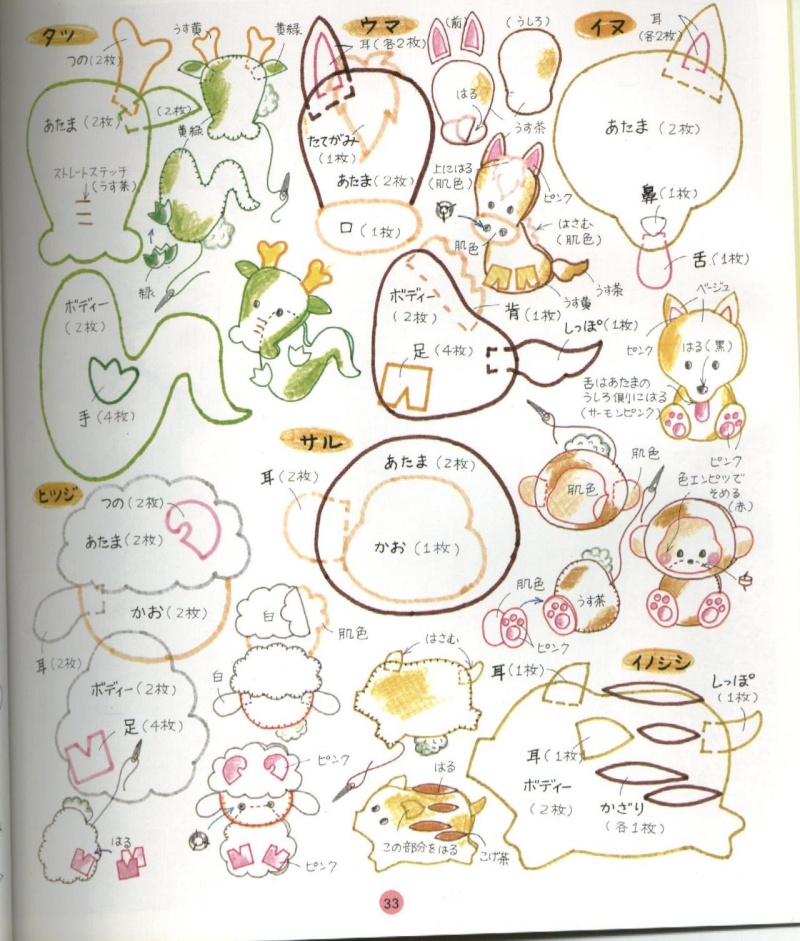 タツ
つの(2枚)
うす黄
黄緑
(2枚)
あたま(2枚)
黄緑
ストレートステッチ
(うす茶)
緑
ボディー
(2枚)
手(4枚)
ウマ
耳(各2枚)
(前)
(うしろ)
はる
うす茶
たてがみ
(1枚)
あたま(2枚)
口(1枚)
上にはる
(肌色)
ピンク
はさむ
(肌色)
肌色
うす茶
うす黄
ボディー
(2枚)
背(1枚)
しっぽ(1枚)
足(4枚)
イヌ
耳
(各2枚)
あたま(2枚)
鼻(1枚)
舌(1枚)
ベージュ
ピンク
はる(黒)
舌はあたまの
うしろ側にはる
(サーモンピンク)
ピンク
サル
あたま(2枚)
耳(2枚)
かお(1枚)
肌色
肌色
色エンピツで
そめる
(赤)
肌色
うす茶
ピンク
白
ヒツジ
つの(2枚)
あたま(2枚)
かお(2枚)
耳(2枚)
白
肌色
ボディー(2枚)
足(4枚)
白
ピンク
はる
ピンク
イノシシ
はさむ
耳(1枚)
しっぽ
(1枚)
耳(1枚)
ボディー
(2枚)
かざり
(各1枚)
はる
この部分をはる
こげ茶
33